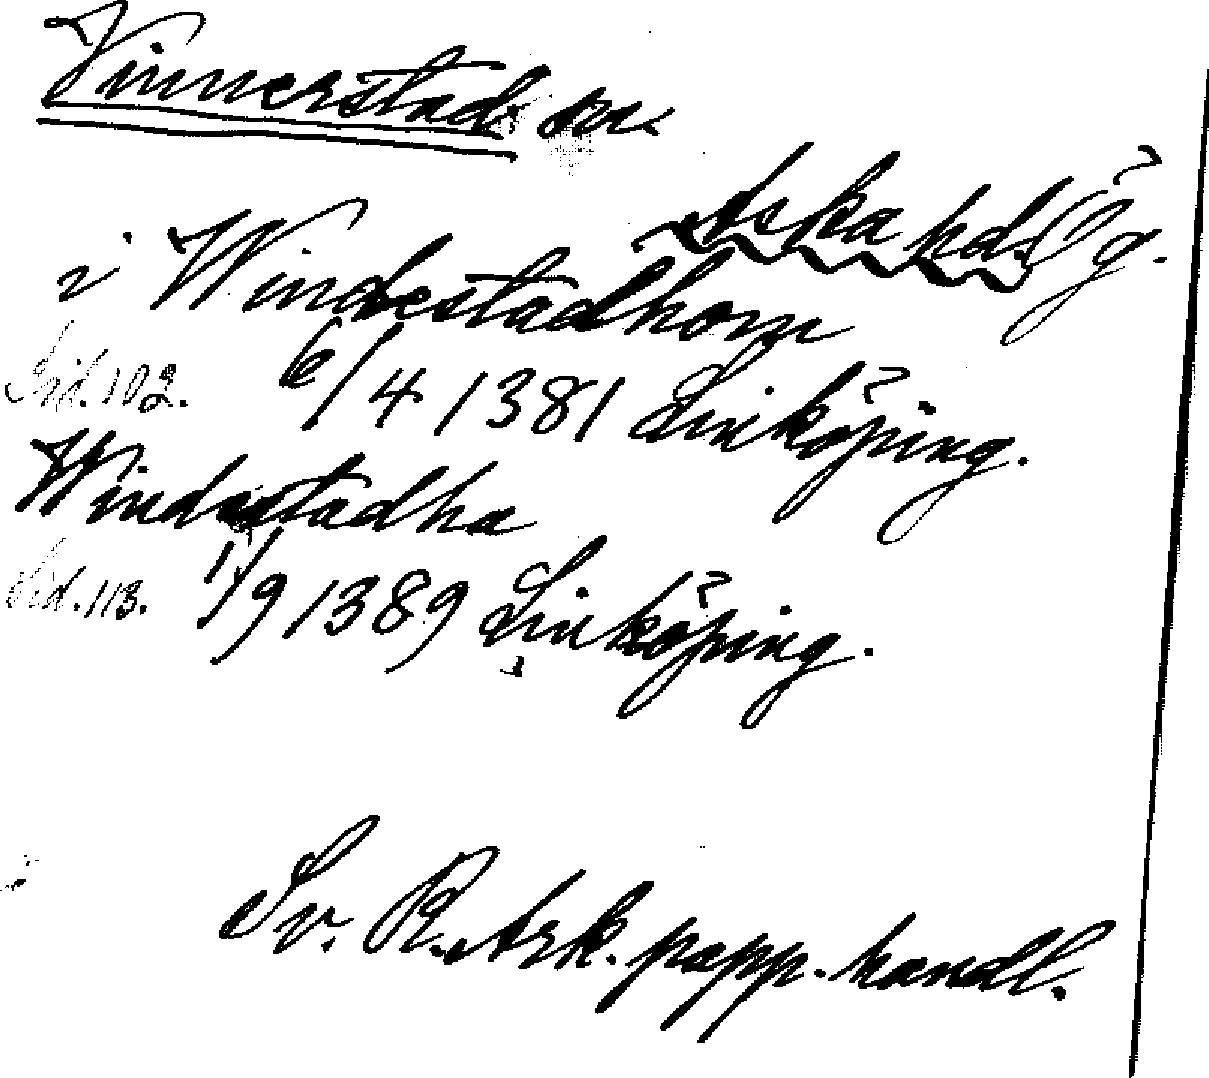 Vinnerstad sn.
Aska hd. Ög.
i Windestadhom
Sid. 102. 6/4 1381 Linköping.
Windestadha
Sid. 113. 1/9 1389 Linköping.
Sv. R. Ark. papp. handl.